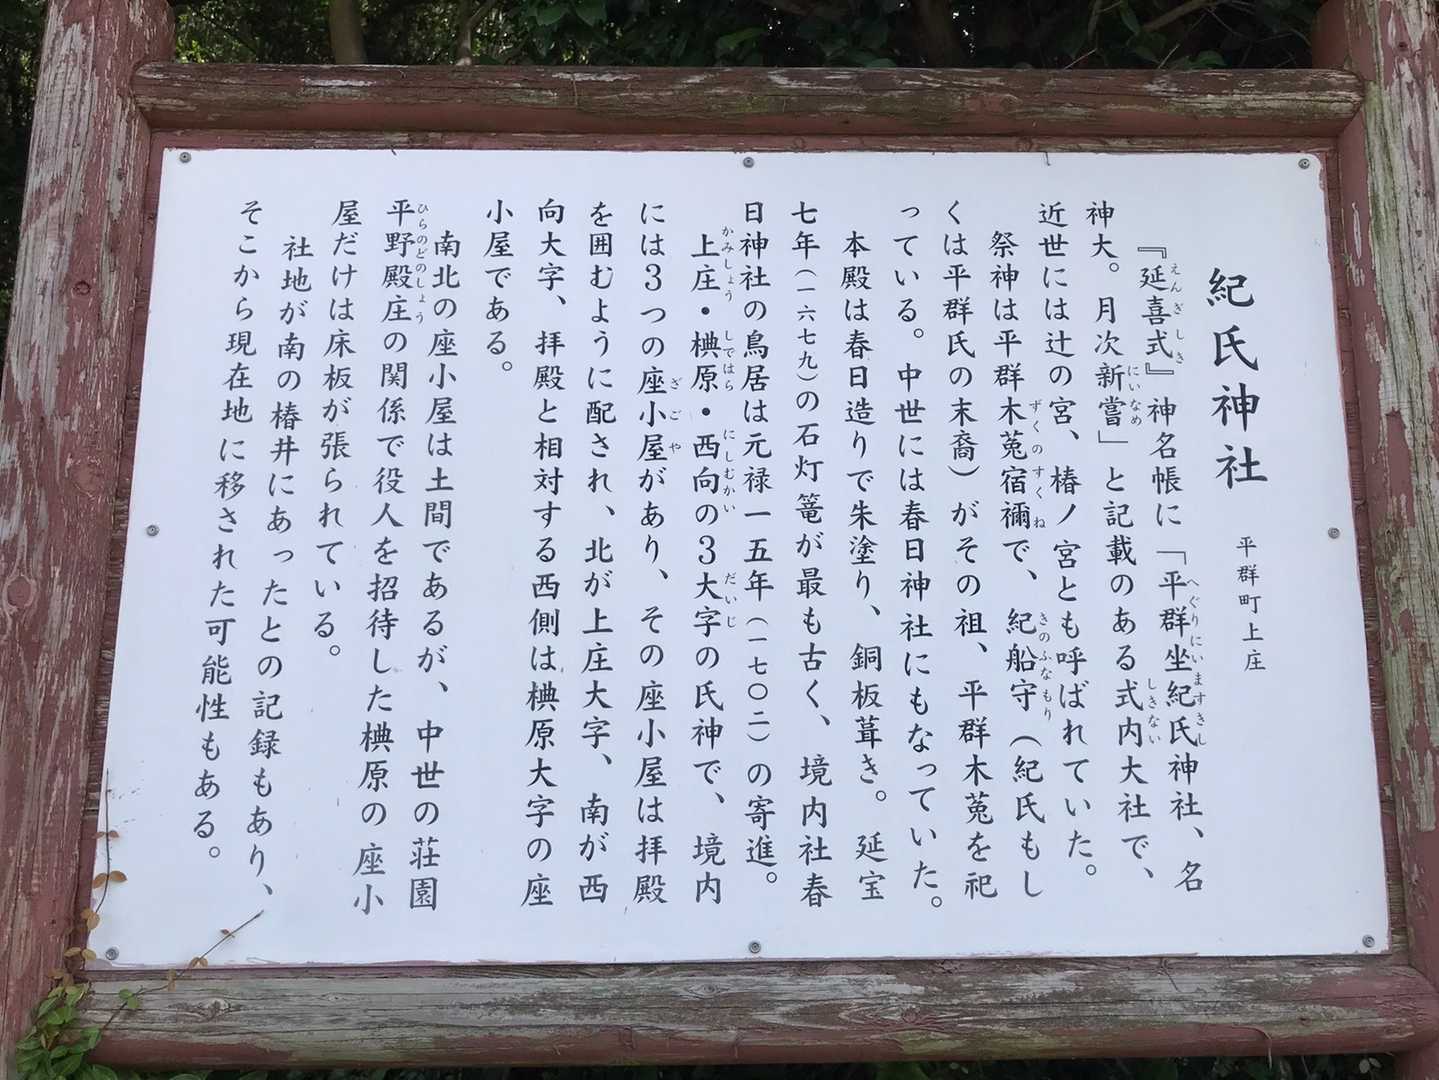 紀氏神社 平群町上庄
『延喜式』神名帳に「平群坐紀氏神社、名
神大。月次新嘗」と記載のある式内大社で、
近世には辻の宮、椿ノ宮とも呼ばれていた。
祭神は平群木菟宿禰で、紀船守(紀氏もし
くは平群氏の末裔)がその祖、平群木菟を祀
っている。中世には春日神社にもなっていた。
本殿は春日造りで朱塗り、銅板葺き。延宝
七年(一六七九)の石灯篭が最も古く、境内社春
日神社の鳥居は元禄一五年(一七〇二)の寄進。
上庄・椣原・西向の3大字の氏神で、境内
には3つの座小屋があり、その座小屋は拝殿
を囲むように配され、北が上庄大字、南が西
向大字、拝殿と相対する西側は椣原大字の座
小屋である。
南北の座小屋は土間であるが、中世の荘園
平野殿庄の関係で役人を招待した椣原の座小
屋だけは床板が張られている。
社地が南の椿井にあったとの記録もあり、
そこから現在地に移された可能性もある。
えんぎしき
へぐりにいますきし
にいなめ
しきない
ずくのすくね
きのふなもり
かみしょう
しではら
にしむかい
だいじ
ざごや
ひらのどのしょう